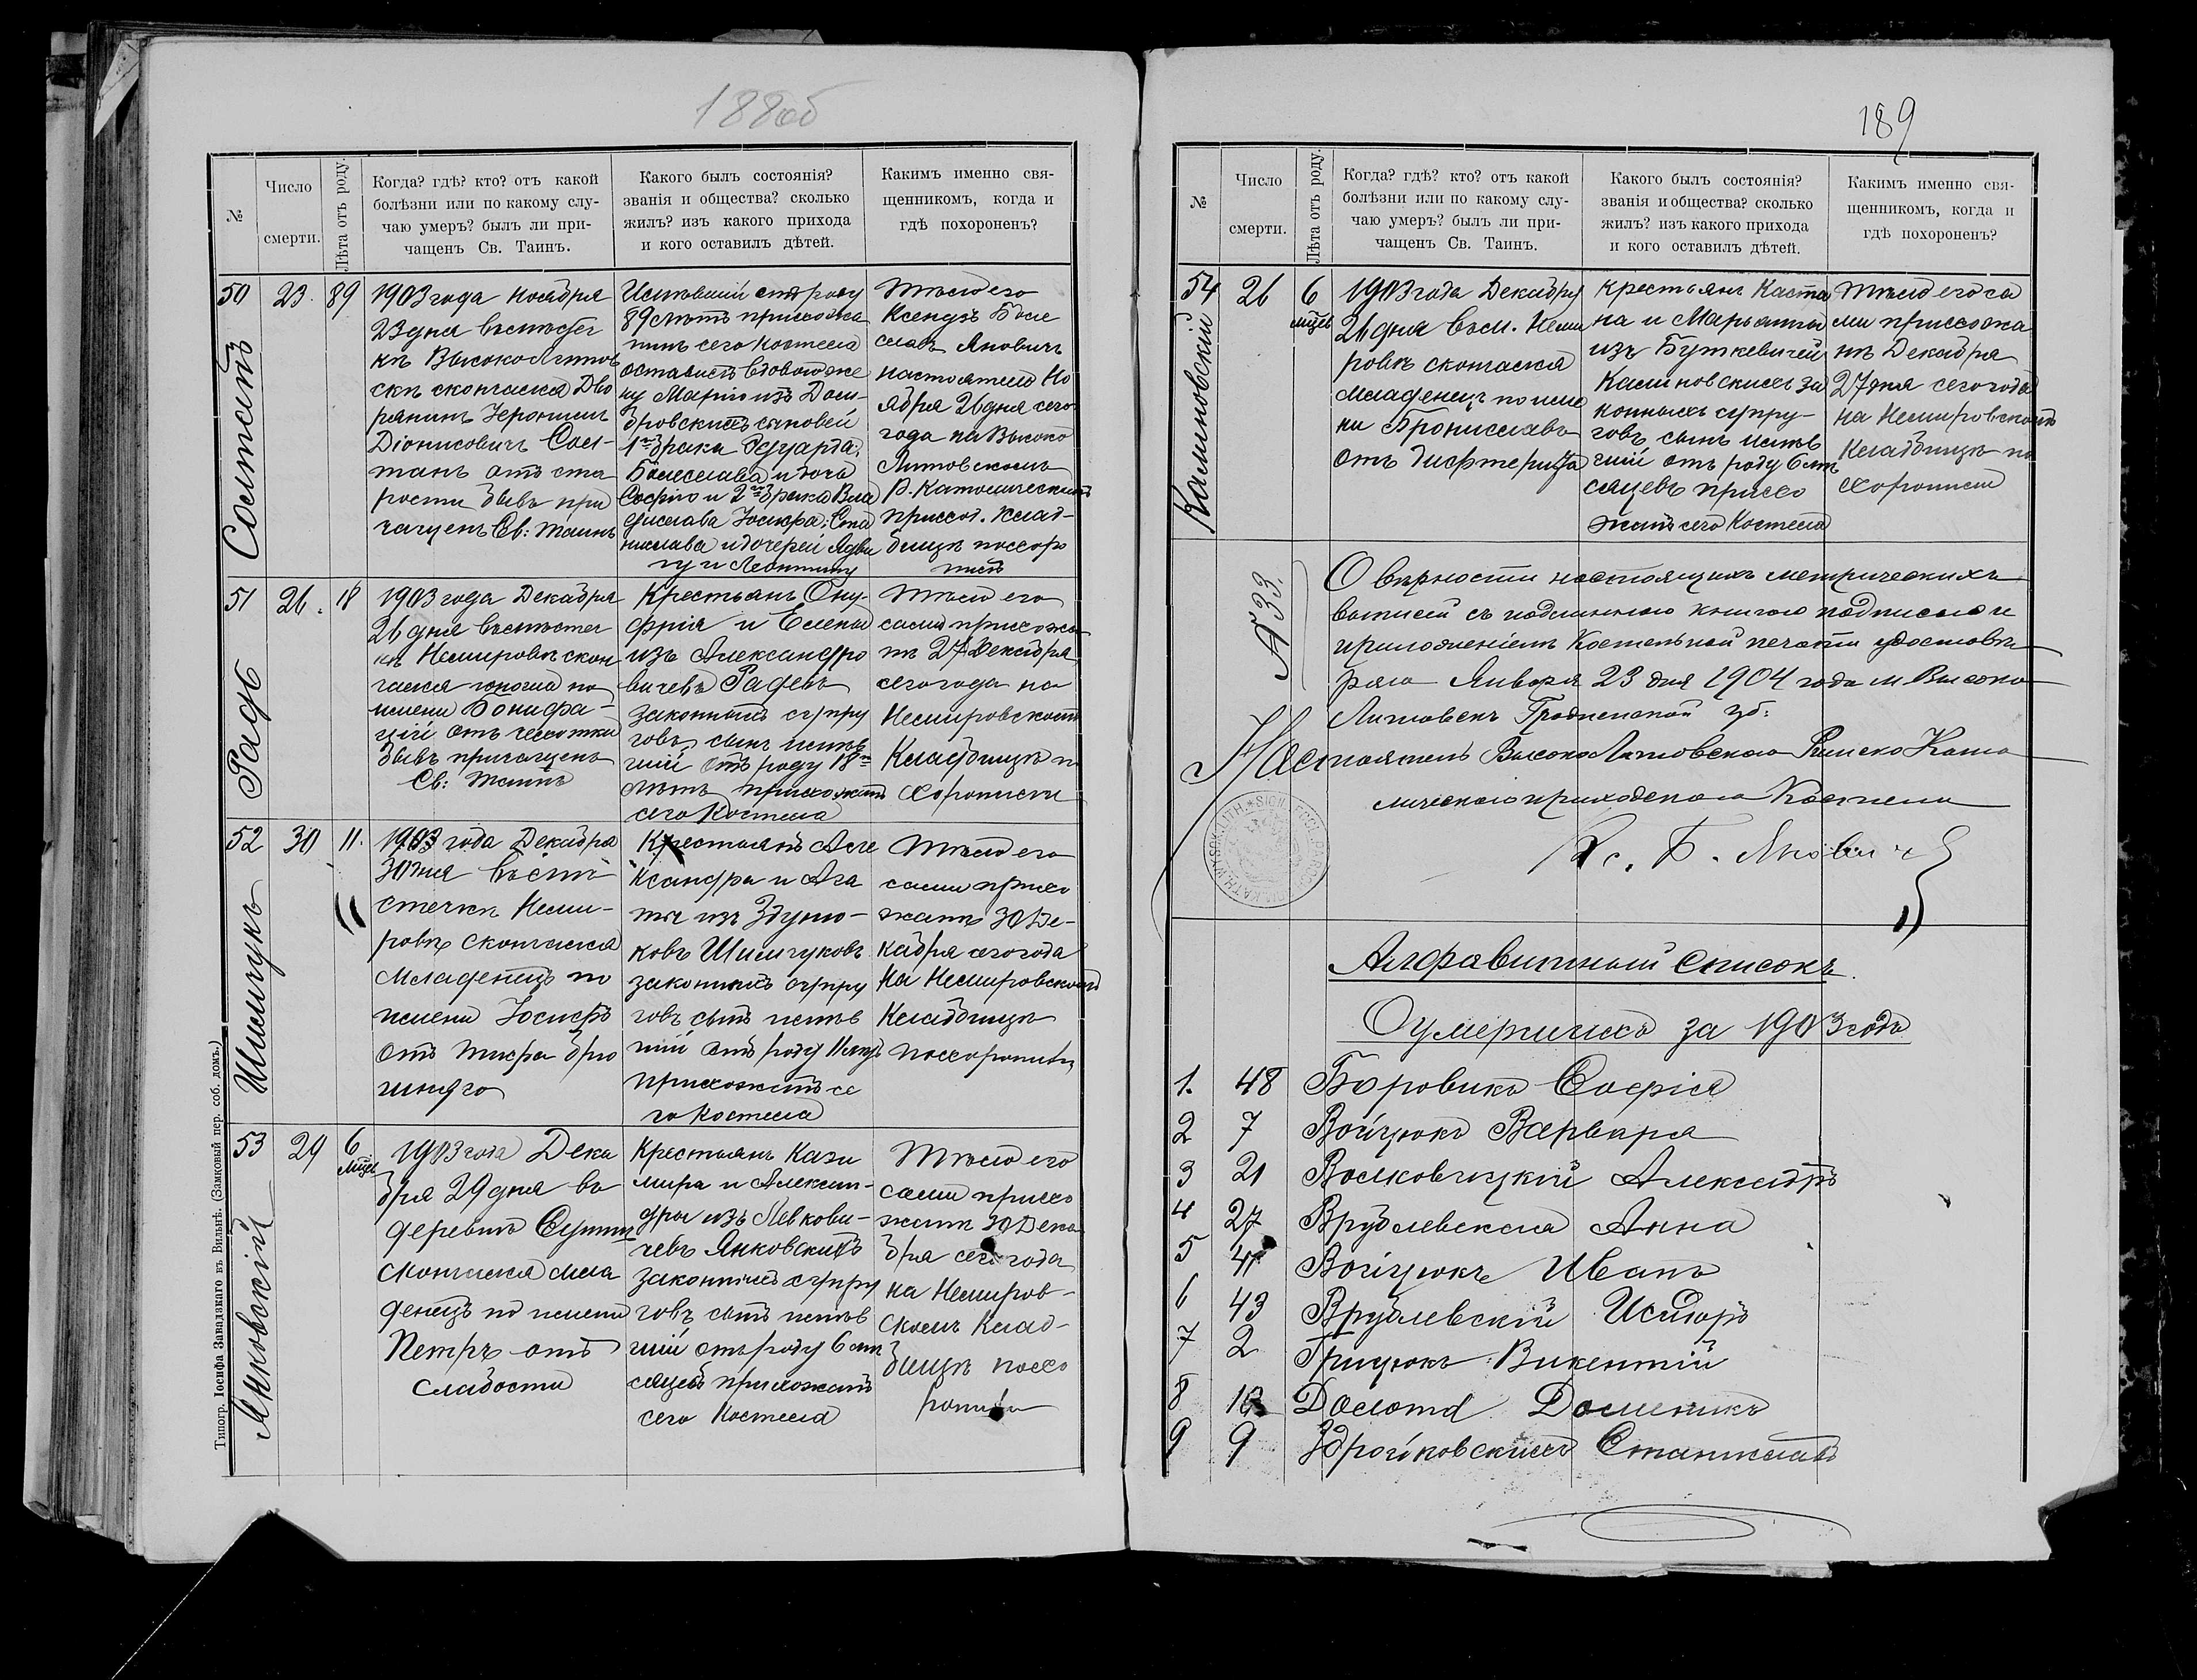 188об
№
Число
смерти.
Лѣта отъ роду.
Когда? гдѣ? кто? отъ какой
болѣзни или по какому слу-
чаю умеръ? былъ ли при-
чащенъ Св. Таинъ.
Какого былъ состоянія?
званія и общества? сколько
жилъ? изъ какого прихода
и кого оставилъ дѣтей.
Какимъ именно свя-
щенникомъ, когда и
гдѣ похороненъ?
50
23.
89
1903 года Ноября
23 дня въ мѣстеч
кѣ Высоко Литов
скѣ скончался Дво
рянинъ Іеронимъ
Діонисовичъ
отъ ста
рости бывъ при
чащенъ Св: Таинъ
Имѣвшій отъ роду
89 лѣтъ прихожа
нинъ сего Костела
оставилъ вдовою же
ну Марію изъ Дом-
бровскихъ сыновей
1го брака Эдуарда,
Болеслава и дочь
Софію и 2го брака Вла
дислава Іосифа, Ста
нислава и дочерей Ядви
гу и Леонтину
Тѣло его
Ксендзъ Боле
славъ Яновичъ
настоятель Но
ября 26 дня сего
года на Высоко
Литовскомъ
Р. Католическомъ
приход. клад-
бищѣ похоро
нилъ
51
26.
18
Радь
1903 года Декабря
26 дня въ мѣстеч
кѣ Немировѣ скон
чался юноша по
имени Бонифа-
цій отъ чахотки
бывъ причащенъ
Св: Таинъ
Крестьянъ Ону-
фрія и Елены
изъ Александро
вичевъ Радевъ
законныхъ супру
говъ сынъ имѣв
шій отъ роду 18ть
лѣтъ прихожанъ
сего Костела
Тѣло его
сами прихожа
не 27 Декабря
сего года на
Немировскомъ
Кладбищѣ по
хоронили
52
30
11.
Шимчукъ
1903 года Декабря
30 дня въ мѣ
стечкѣ Неми-
ровѣ скончался
Младенецъ по
имени Іосифъ
отъ тифа брю
шнаго
Крестьянъ Але
ксандра и Ага
ты изъ
ковъ Шимчуковъ
законныхъ супру
говъ сынъ имѣв
шій отъ роду 11
прихожанъ се
го Костела
Тѣло его
сами прихо
жане 30 Де-
кабря сего года
на Немировскомъ
Кладбищѣ
похоронили
53
29
6
мцев
Янковскій
1903 года Дека
бря 29 дня въ
деревнѣ
скончался мла
денецъ по имени
Петръ отъ
слабости
Крестьянъ Кази
мира и Алексан-
дры изъ Левкови-
чевъ Янковскихъ
законныхъ супру
говъ сынъ имѣв
шій отъ роду 6 мѣ
сяцевъ прихожанъ
сего Костела
Тѣло его
сами прихо
жане 30 Дека
бря сего года
на Немиров-
скомъ Клад-
бищѣ похо
ронили
Типогр. Іосифа Завадзкаго въ Вильнѣ. (Замковый пер. соб. домъ.)
189
№
Число
смерти.
Лѣта отъ роду.
Когда? гдѣ? кто? отъ какой
болѣзни или по какому слу-
чаю умеръ? былъ ли при-
чащенъ Св. Таинъ.
Какого былъ состоянія?
званія и общества? сколько
жилъ? изъ какого прихода
и кого оставилъ дѣтей.
Какимъ именно свя-
щенникомъ, когда и
гдѣ похороненъ?
54
26
6
мцев
Калиновскій
1903 года Декабря
26 дня въ м. Неми
ровѣ скончался
младенецъ по име
ни Брониславъ
отъ дифтерита
Крестьянъ Каста
на и Марьянны
изъ Буткевичей
Калиновскихъ за
конныхъ супру-
говъ сынъ имѣв
шій отъ роду 6 мѣ
сяцевъ прихо
жанъ сего Костела
Тѣло его са
ми прихожа
не Декабря
27 дня сего года
на Немировскомъ
Кладбищѣ по
хоронили
№ 33.
О вѣрности настоящихъ метрическихъ
выписей съ подлинною книгою подписью и
приложеніемъ Костельной печати удостовѣ
ряю Января 23 дня 1904 года м Высоко
Литовскъ Гродненской губ:
Настоятель Высоко Литовскаго Римско Като
лическаго приходскаго Костела
Кс. Б. Яновичъ
Алфавитный списокъ
О умершихъ за 1903 годъ
1. 48 Боровикъ Софія
2 7 Войцюкъ Варвара
3 21 Волковыцкій Александръ
4 27 Врублевская Анна
5 41 Войцюкъ Иванъ
6 43 Врублевскій Исидоръ
7 2 Грицюкъ Викентій
8 Долота Доминикъ
9 9 Здройковскихъ Станиславъ